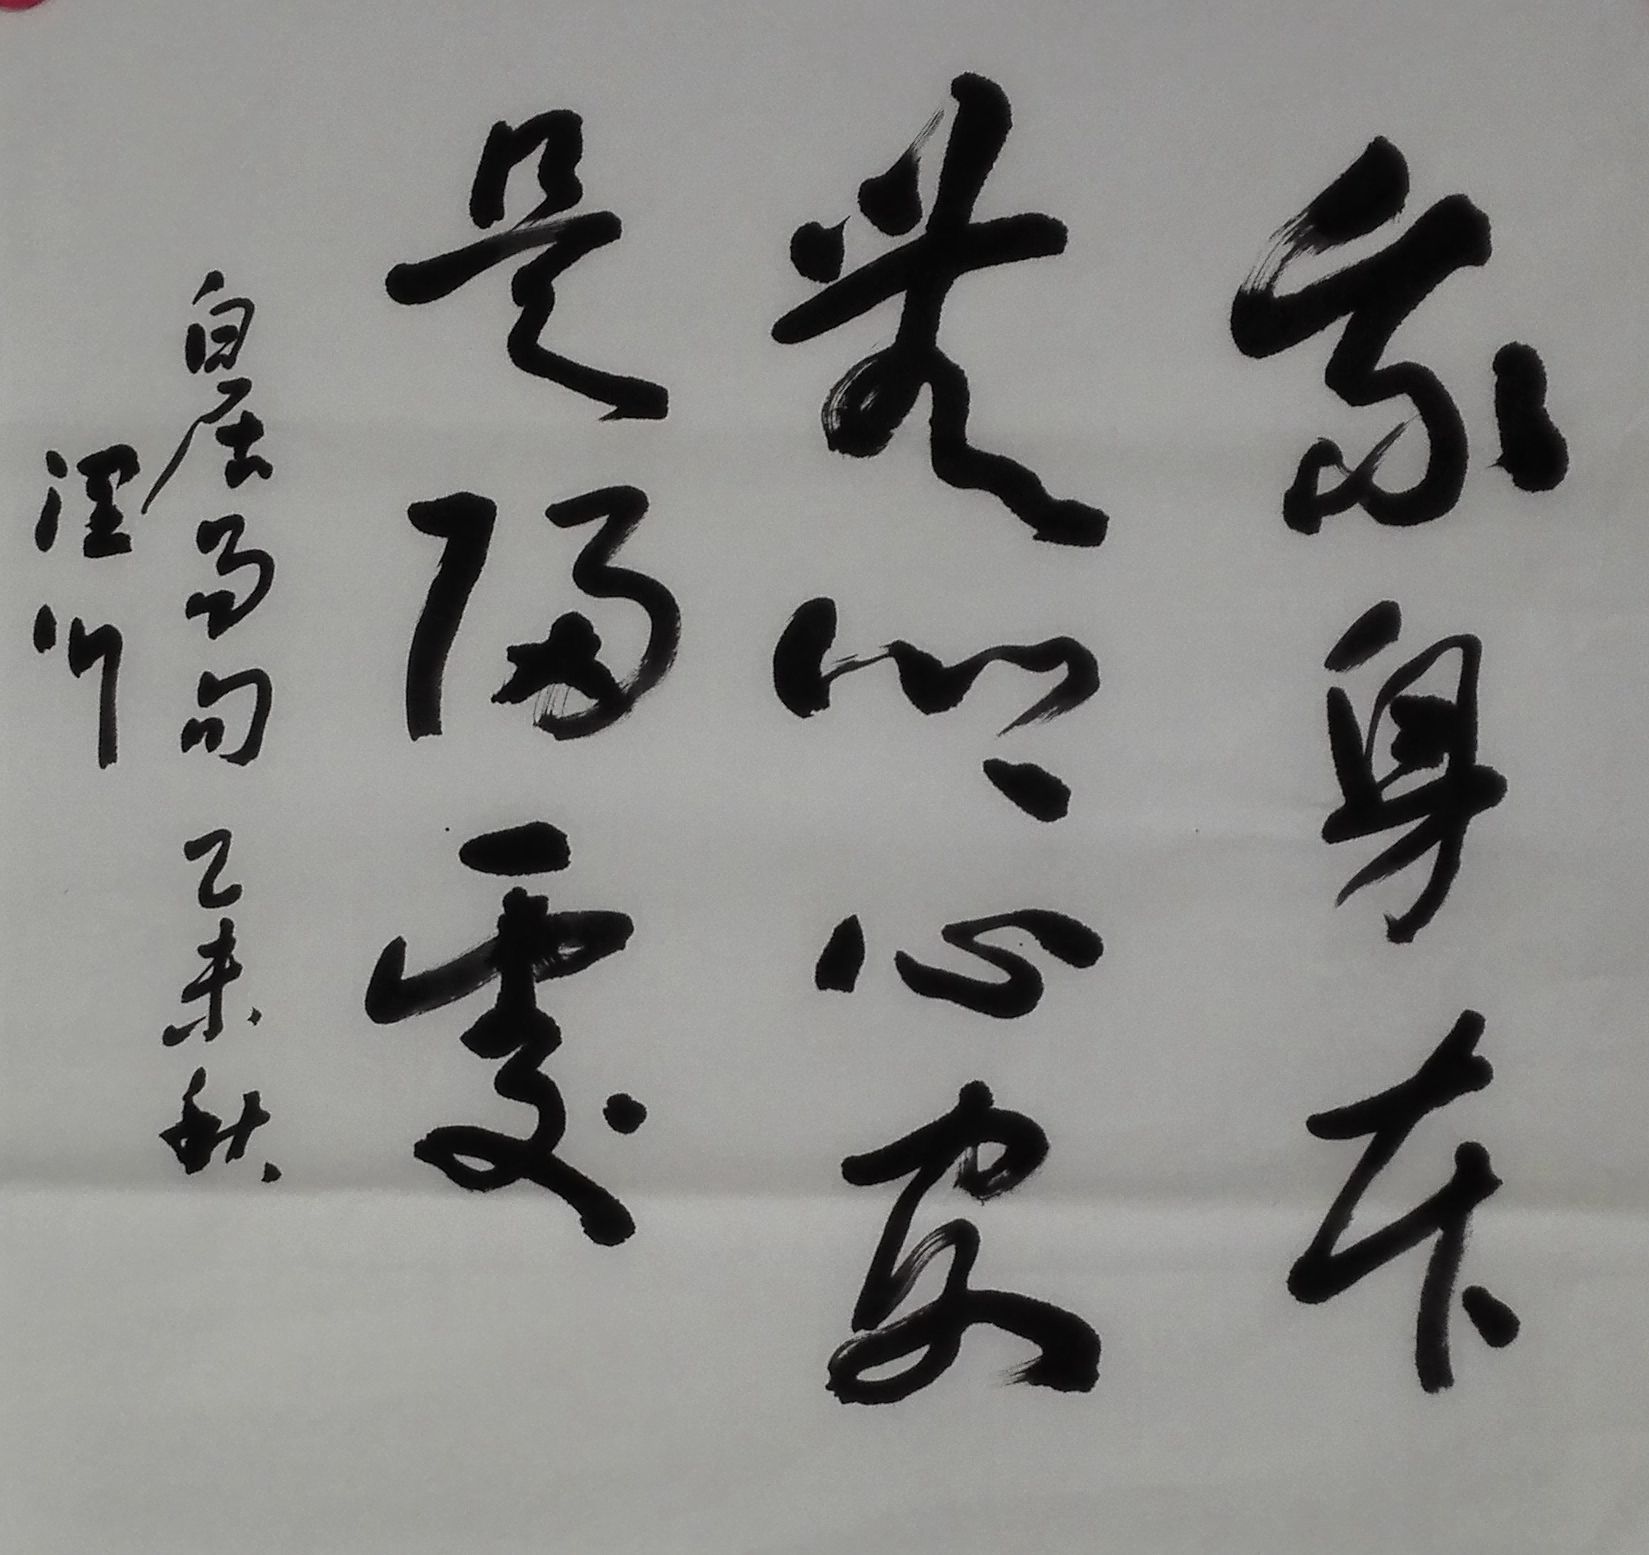 我身本
無鄉心安
是歸處
白居易句 乙未秋
川